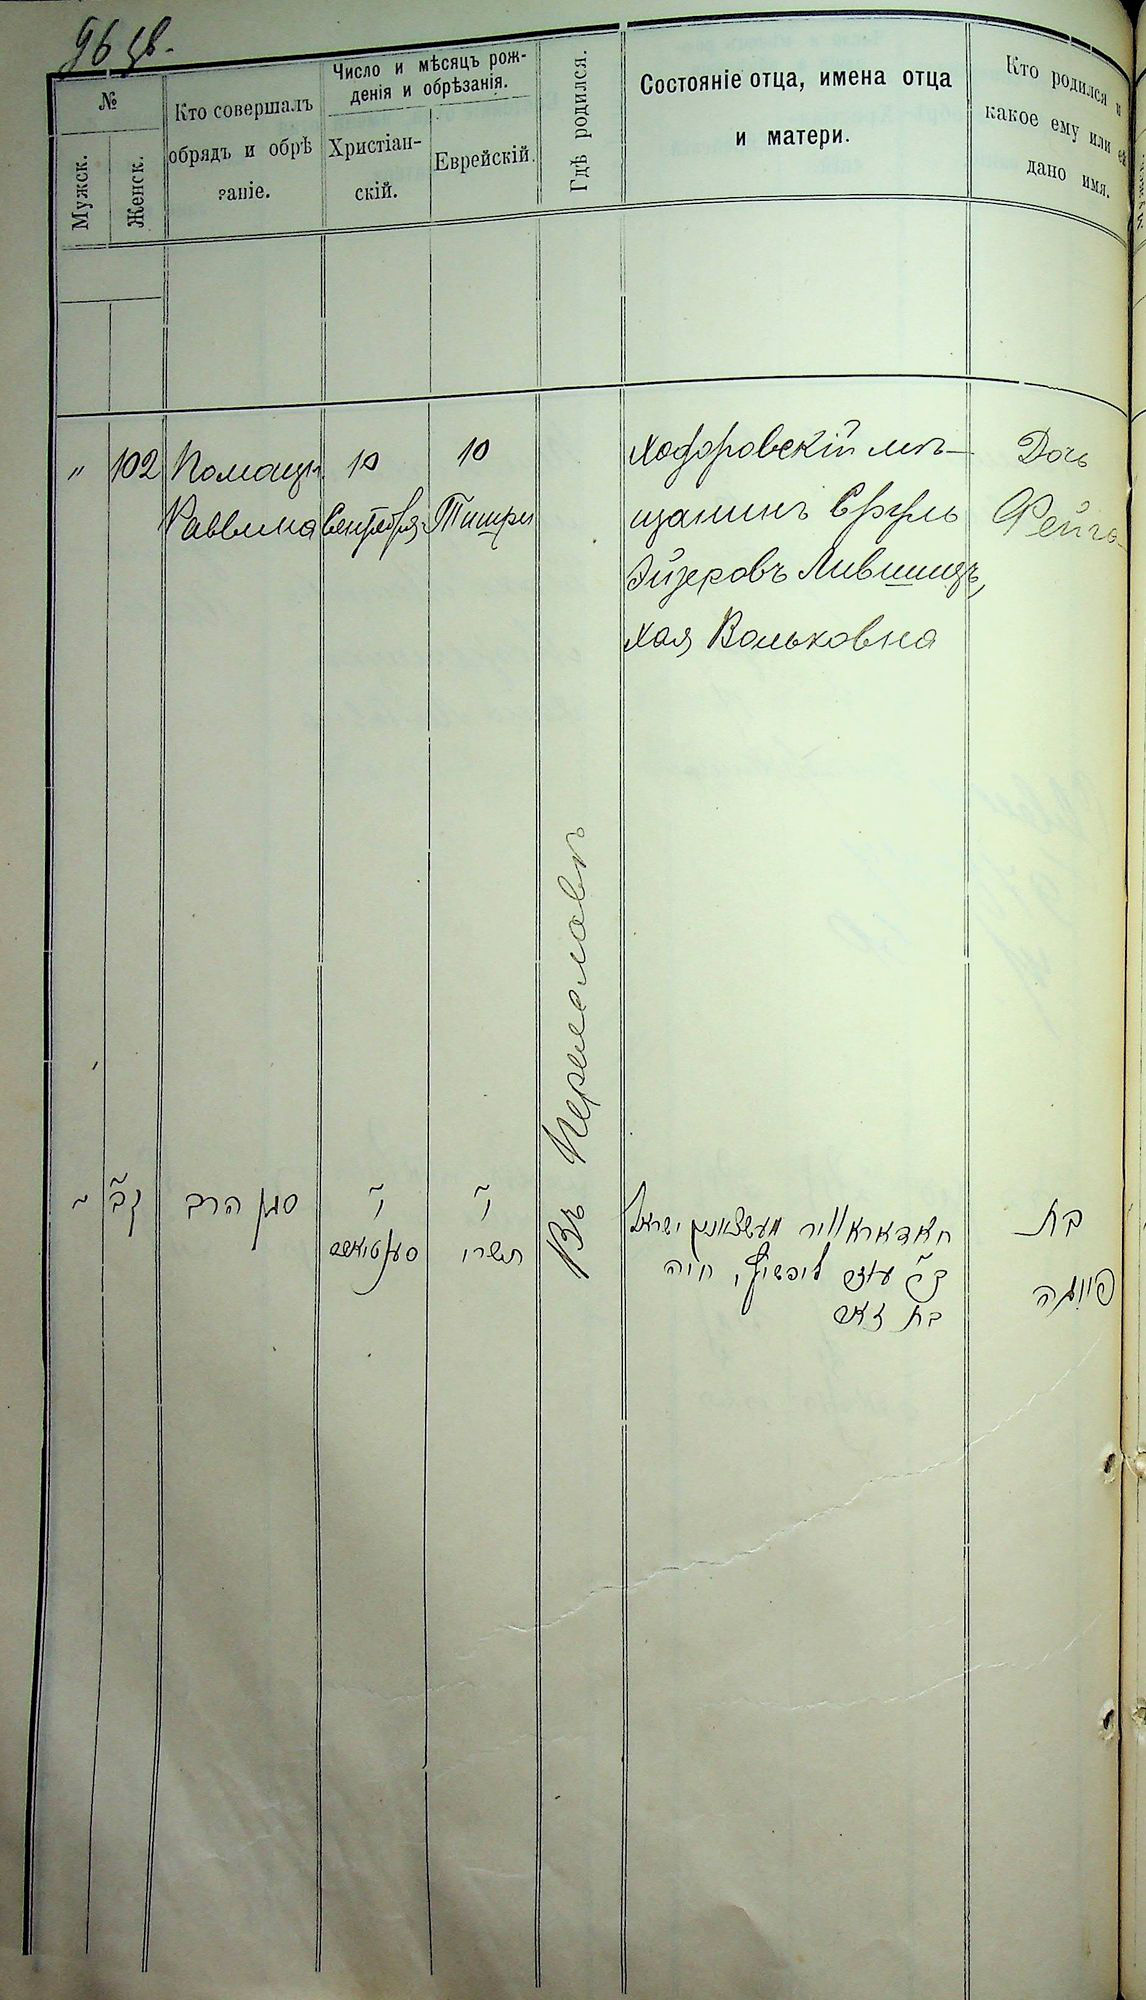 96 об.
№
Мужск.
Женск.
Кто совершалъ
обрядъ и обрѣ
заніе.
Число и мѣсяцъ рож-
денія и обрѣзанія.
Христіан-
скій.
Еврейскій.
Гдѣ родился.
Состояніе отца, имена отца
и матери.
Кто родился и
какое ему или ей
дано имя.
" 102
Помощн.
Раввина
10
Сентября
10
Тишри
Въ
Ходоровскій мѣ-
щанинъ Сруль
Эйзеровъ Лившицъ,
Хая Вольковна
Дочь
Фейга
קב
סגן הרב
י
סענטיאבר
י
תשרי
ישראל
חיה
בת
בת
פייגה